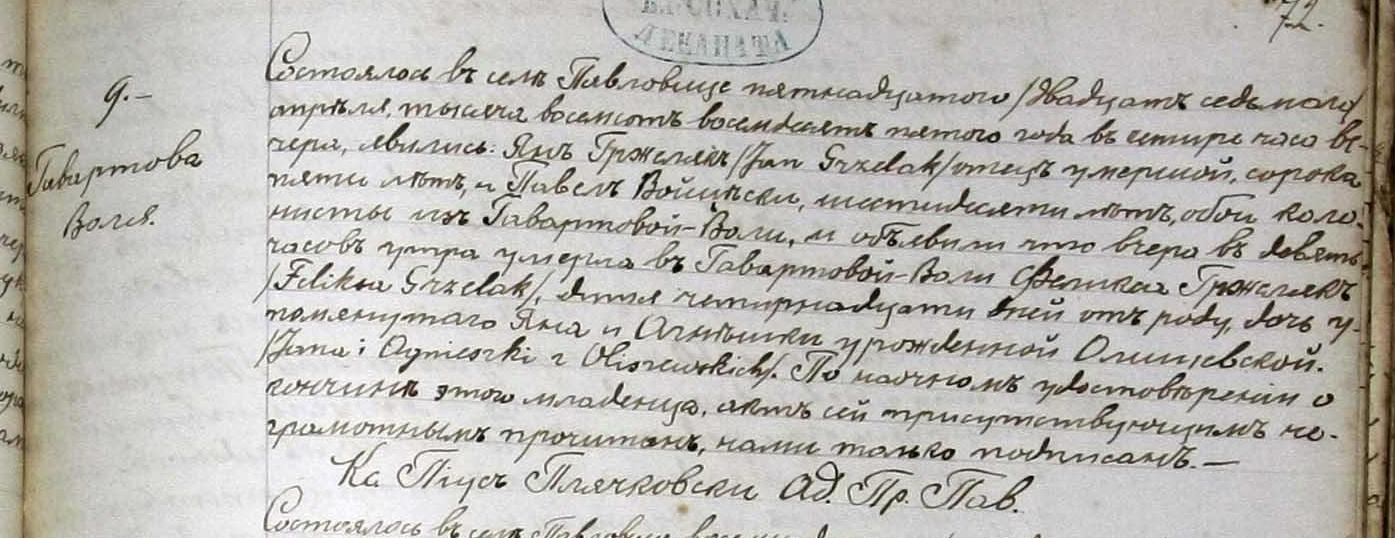 72.
ДЕКАНАТА
9.–
Гавартова
Воля.
Состоялось въ селѣ Павловице пятнадцатого /двадцать седьмаго/
апрѣля, тысяча восемсотъ восемдесятъ пятого года въ четыре часа ве-
чера, явились: Янъ Гржелякъ /Jan Grzelak/ отецъ умершой, сорока
пяти лѣтъ, и Павелъ Войцѣски, шестидесяти лѣтъ, обои коло-
нисты изъ Гавартовой-Воли, и объявили что вчера въ девять
часовъ утра умерла въ Гавартовой-Воли Феликса Гржелякъ
/Feliksa Grzelak/, дитя четырнадцати дней отъ роду, дочь у-
помянутаго Яна и Огнѣшки урожденной Олишевской.
/Jana i Agnieszki z Oliszewskich/. По наочномъ удостовѣреніи о
кончинѣ этого младенца, актъ сей присутствующимъ не-
грамотнымъ прочитанъ, нами только подписанъ.–
Кс. Піусъ Плячковски Ад. Пр. Пав.
Состоялось въ селѣ Павловице